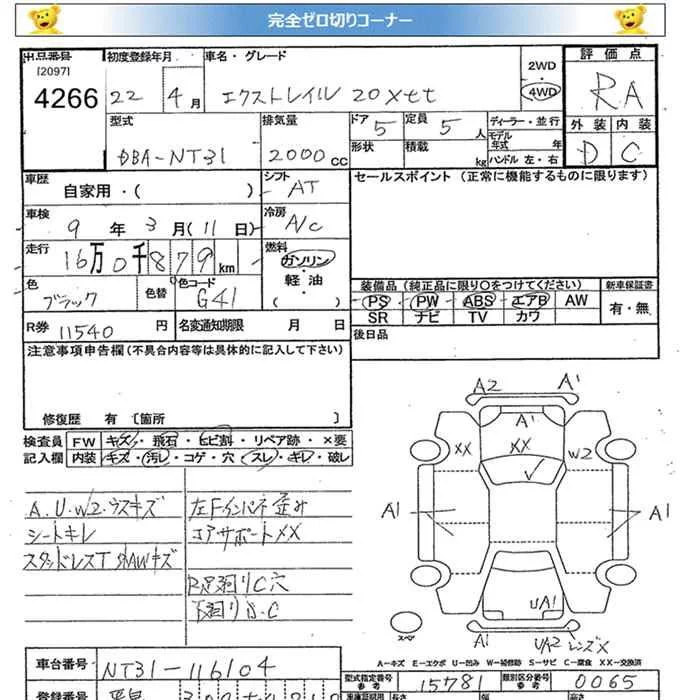 完全ゼロ切りコーナー
出品番号 初度登録年月 車名・グレード 2WD・4WD 評価点
[2097]
4266 22年 4月 エクストレイル 20Xtt RA
型式 排気量 ドア 5 定員 5人 ディーラー・並行 外装 内装
DBA-NT31 2000cc 形状 積載 kg モデル年式 年 ハンドル 左・右 D C
車歴 自家用・( ) シフト AT セールスポイント (正常に機能するものに限ります)
車検 9年 3月(11日) 冷房 A/C
走行 16万0千879km 燃料 ガソリン・軽油・( )
色 ブラック 色替 色コード G41 装備品(純正品に限り○をつけてください) 新車保証書
PS PW ABS エアB AW 有・無
SR ナビ TV カワ
R券 11540円 名変通知期限 月 日 後日品
注意事項申告欄(不具合内容等は具体的に記入して下さい)
修復歴 有 [箇所 ]
検査員 FW キズ・飛石・ヒビ割・リペア跡・×要
記入欄 内装 キズ・汚レ・コゲ・穴・スレ・キレ・破レ
A.U.W2.ウスキズ
シートキレ
スタッドレスT 外AWキズ
左Fインパネ歪み
コアサポートXX
足廻りC穴
下廻りS.C
A2 A1
A1
XX XX W2
A1 A1
UA1
スペア A1 UA2 レンズX
A-キズ E-エクボ U-凹み W-補修跡 S-サビ C-腐食 XX-交換済
車台番号 NT31-116104 型式指定番号 参考 15781 類別区分番号 参考 0065
登録番号